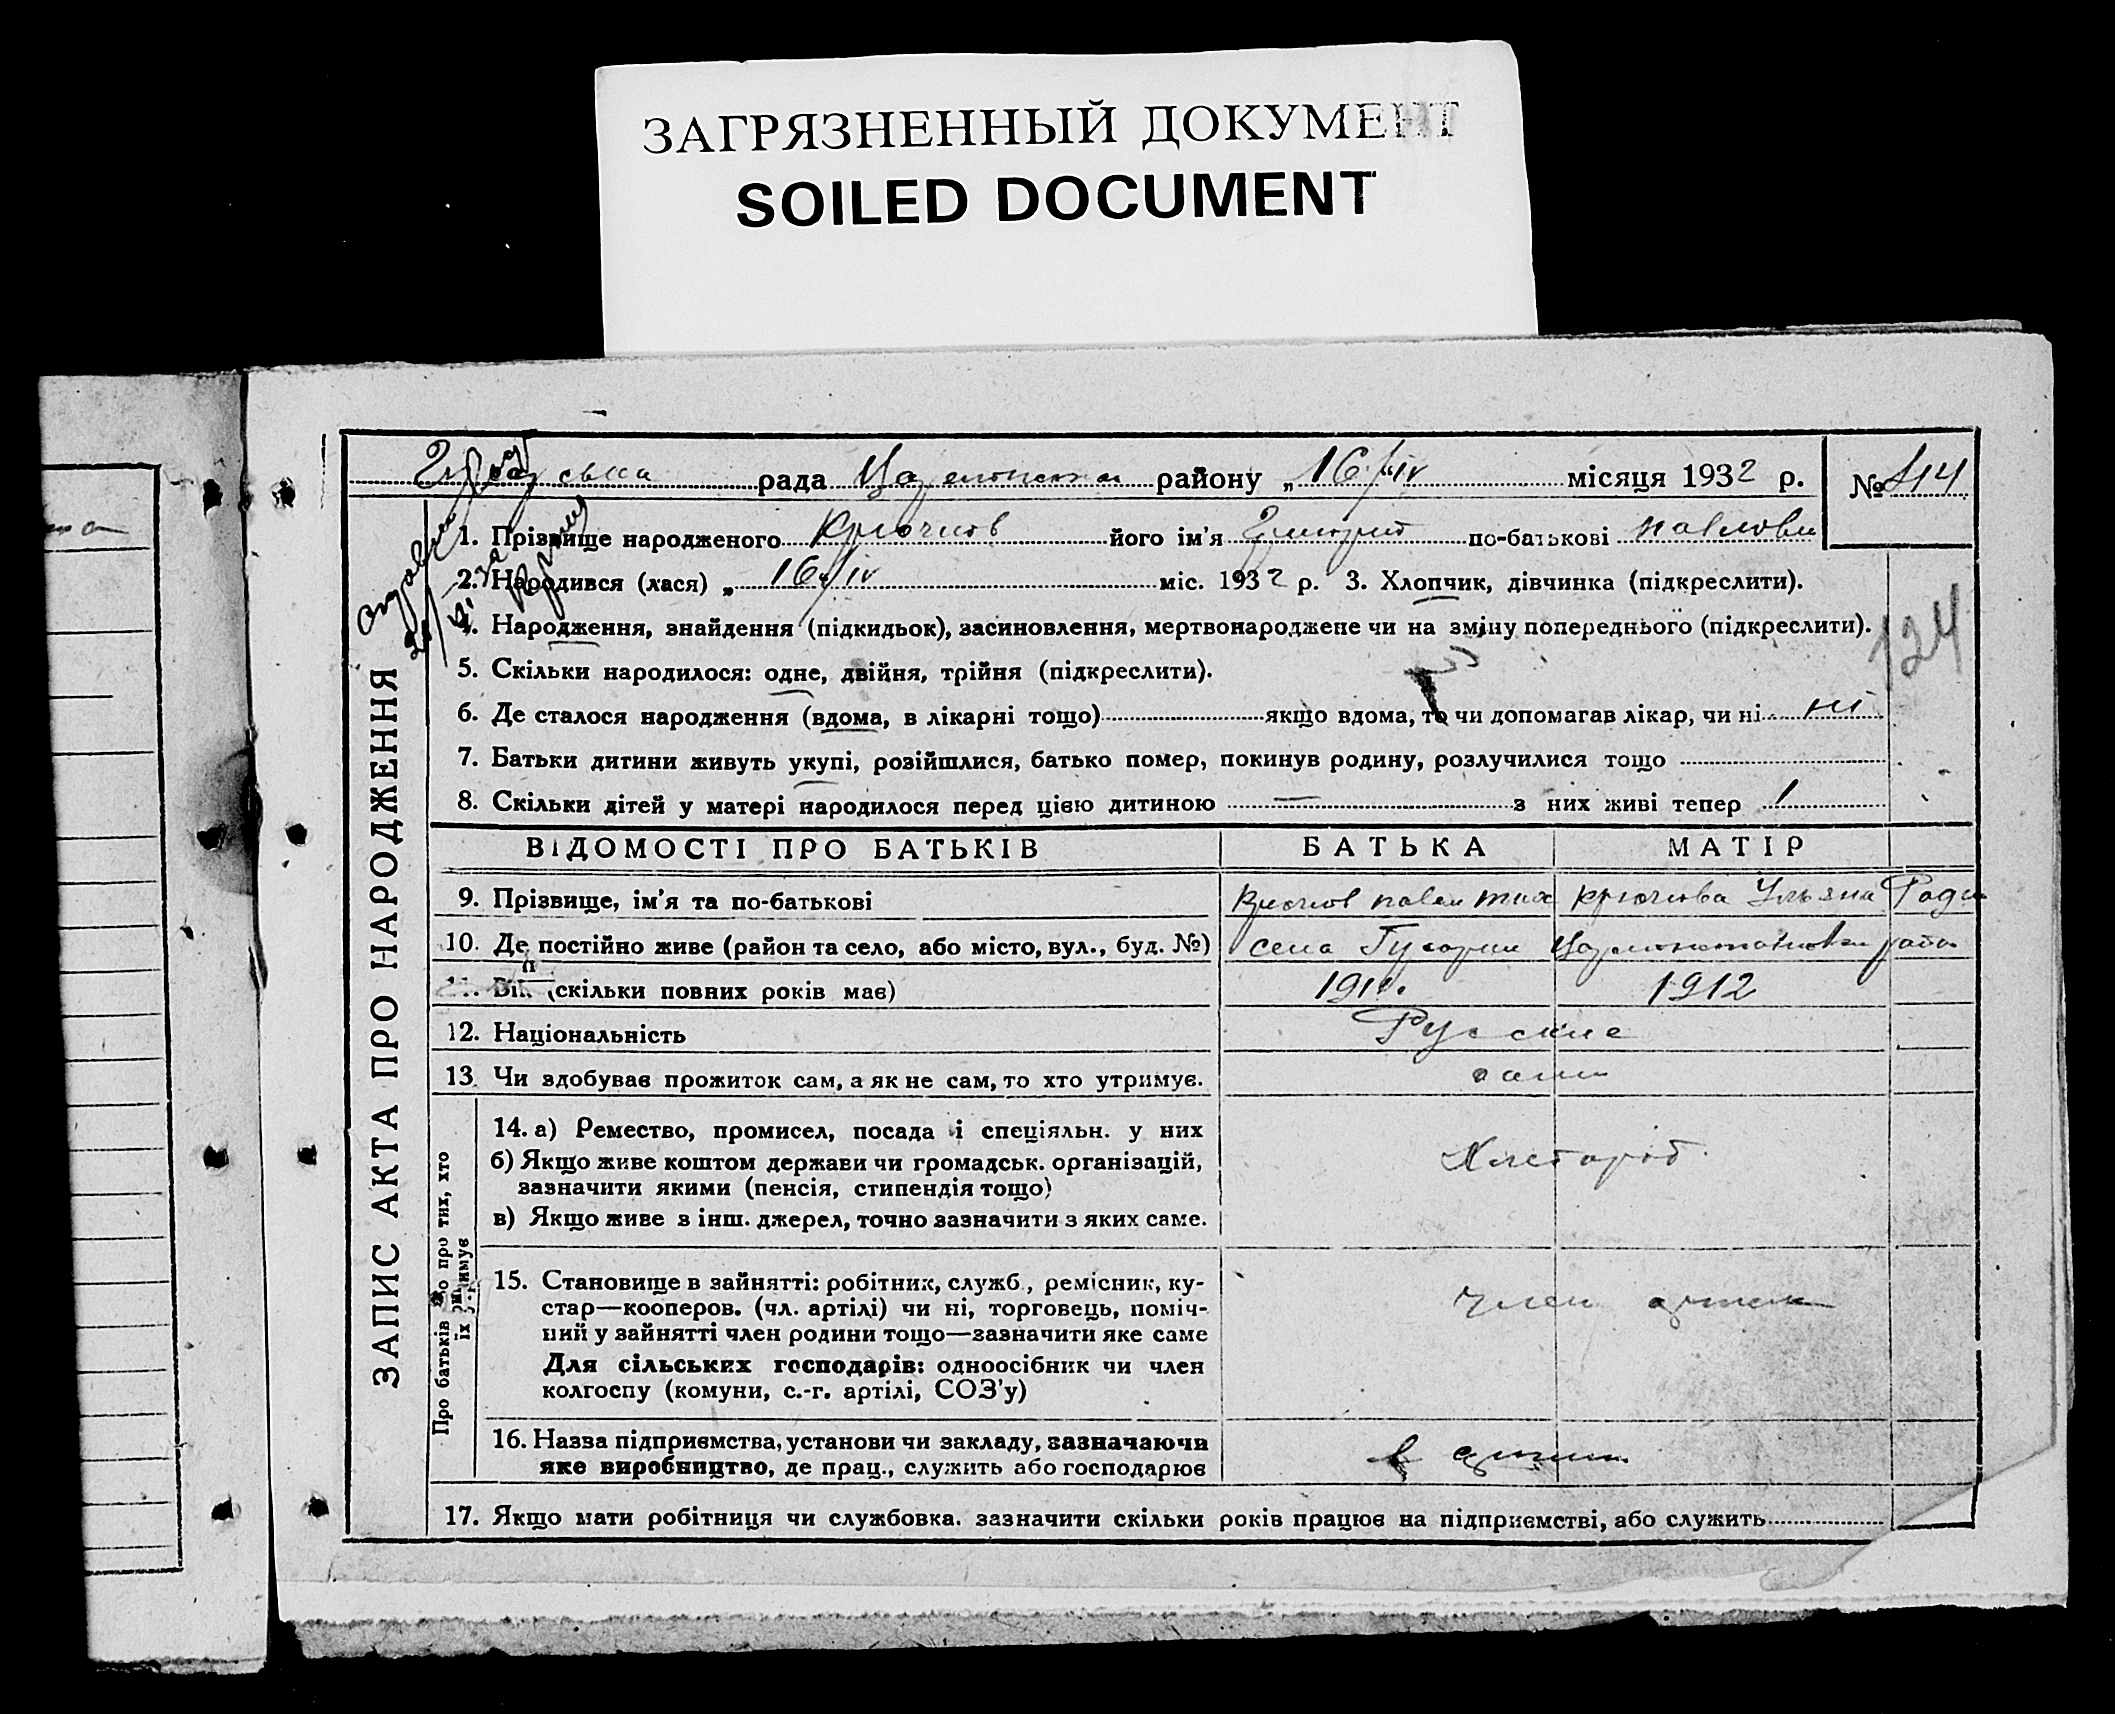 ЗАГРЯЗНЕННЫЙ ДОКУМЕНТ
SOILED DOCUMENT
рада району „16/IV місяця 1932 р. № 114
ЗАПИС АКТА ПРО НАРОДЖЕННЯ
1. Прізвище народженого Крючков його ім'я по-батькові павлови
2. Народився (лася) „16/IV міс. 1932 р. 3. Хлопчик, дівчинка (підкреслити).
4. Народження, знайдення (підкидьок), засиновлення, мертвонароджене чи на зміну попереднього (підкреслити).
124
5. Скільки народилося: одне, двійня, трійня (підкреслити).
6. Де сталося народження (вдома, в лікарні тощо) якщо вдома, то чи допомагав лікар, чи ні ні
7. Батьки дитини живуть укупі, розійшлися, батько помер, покинув родину, розлучилися тощо
8. Скільки дітей у матері народилося перед цією дитиною — з них живі тепер 1
ВІДОМОСТІ ПРО БАТЬКІВ БАТЬКА МАТІР
9. Прізвище, ім'я та по-батькові Крючков павел тих крючкова Ульяна Роди
10. Де постійно живе (район та село, або місто, вул., буд. №) села
11. Вік (скільки повних років має) 1912
12. Національність Русские
13. Чи здобував прожиток сам, а як не сам, то хто утримує. сами
Про батьків або про тих, хто їх утримує
14. а) Ремество, промисел, посада і спеціяльн. у них Хлебороб
б) Якщо живе коштом держави чи громадськ. організацій,
зазначити якими (пенсія, стипендія тощо)
в) Якщо живе з інш. джерел, точно зазначити з яких саме.
15. Становище в зайнятті: робітник, служб., ремісник, ку-
стар—кооперов. (чл. артілі) чи ні, торговець, поміч- член
ний у зайнятті член родини тощо—зазначити яке саме
Для сільських господарів: одноосібник чи член
колгоспу (комуни, с.-г. артілі, СОЗ'у)
16. Назва підприємства, установи чи закладу, зазначаючи в
яке виробництво, де прац., служить або господарює
17. Якщо мати робітниця чи службовка. зазначити скільки років працює на підприємстві, або служить